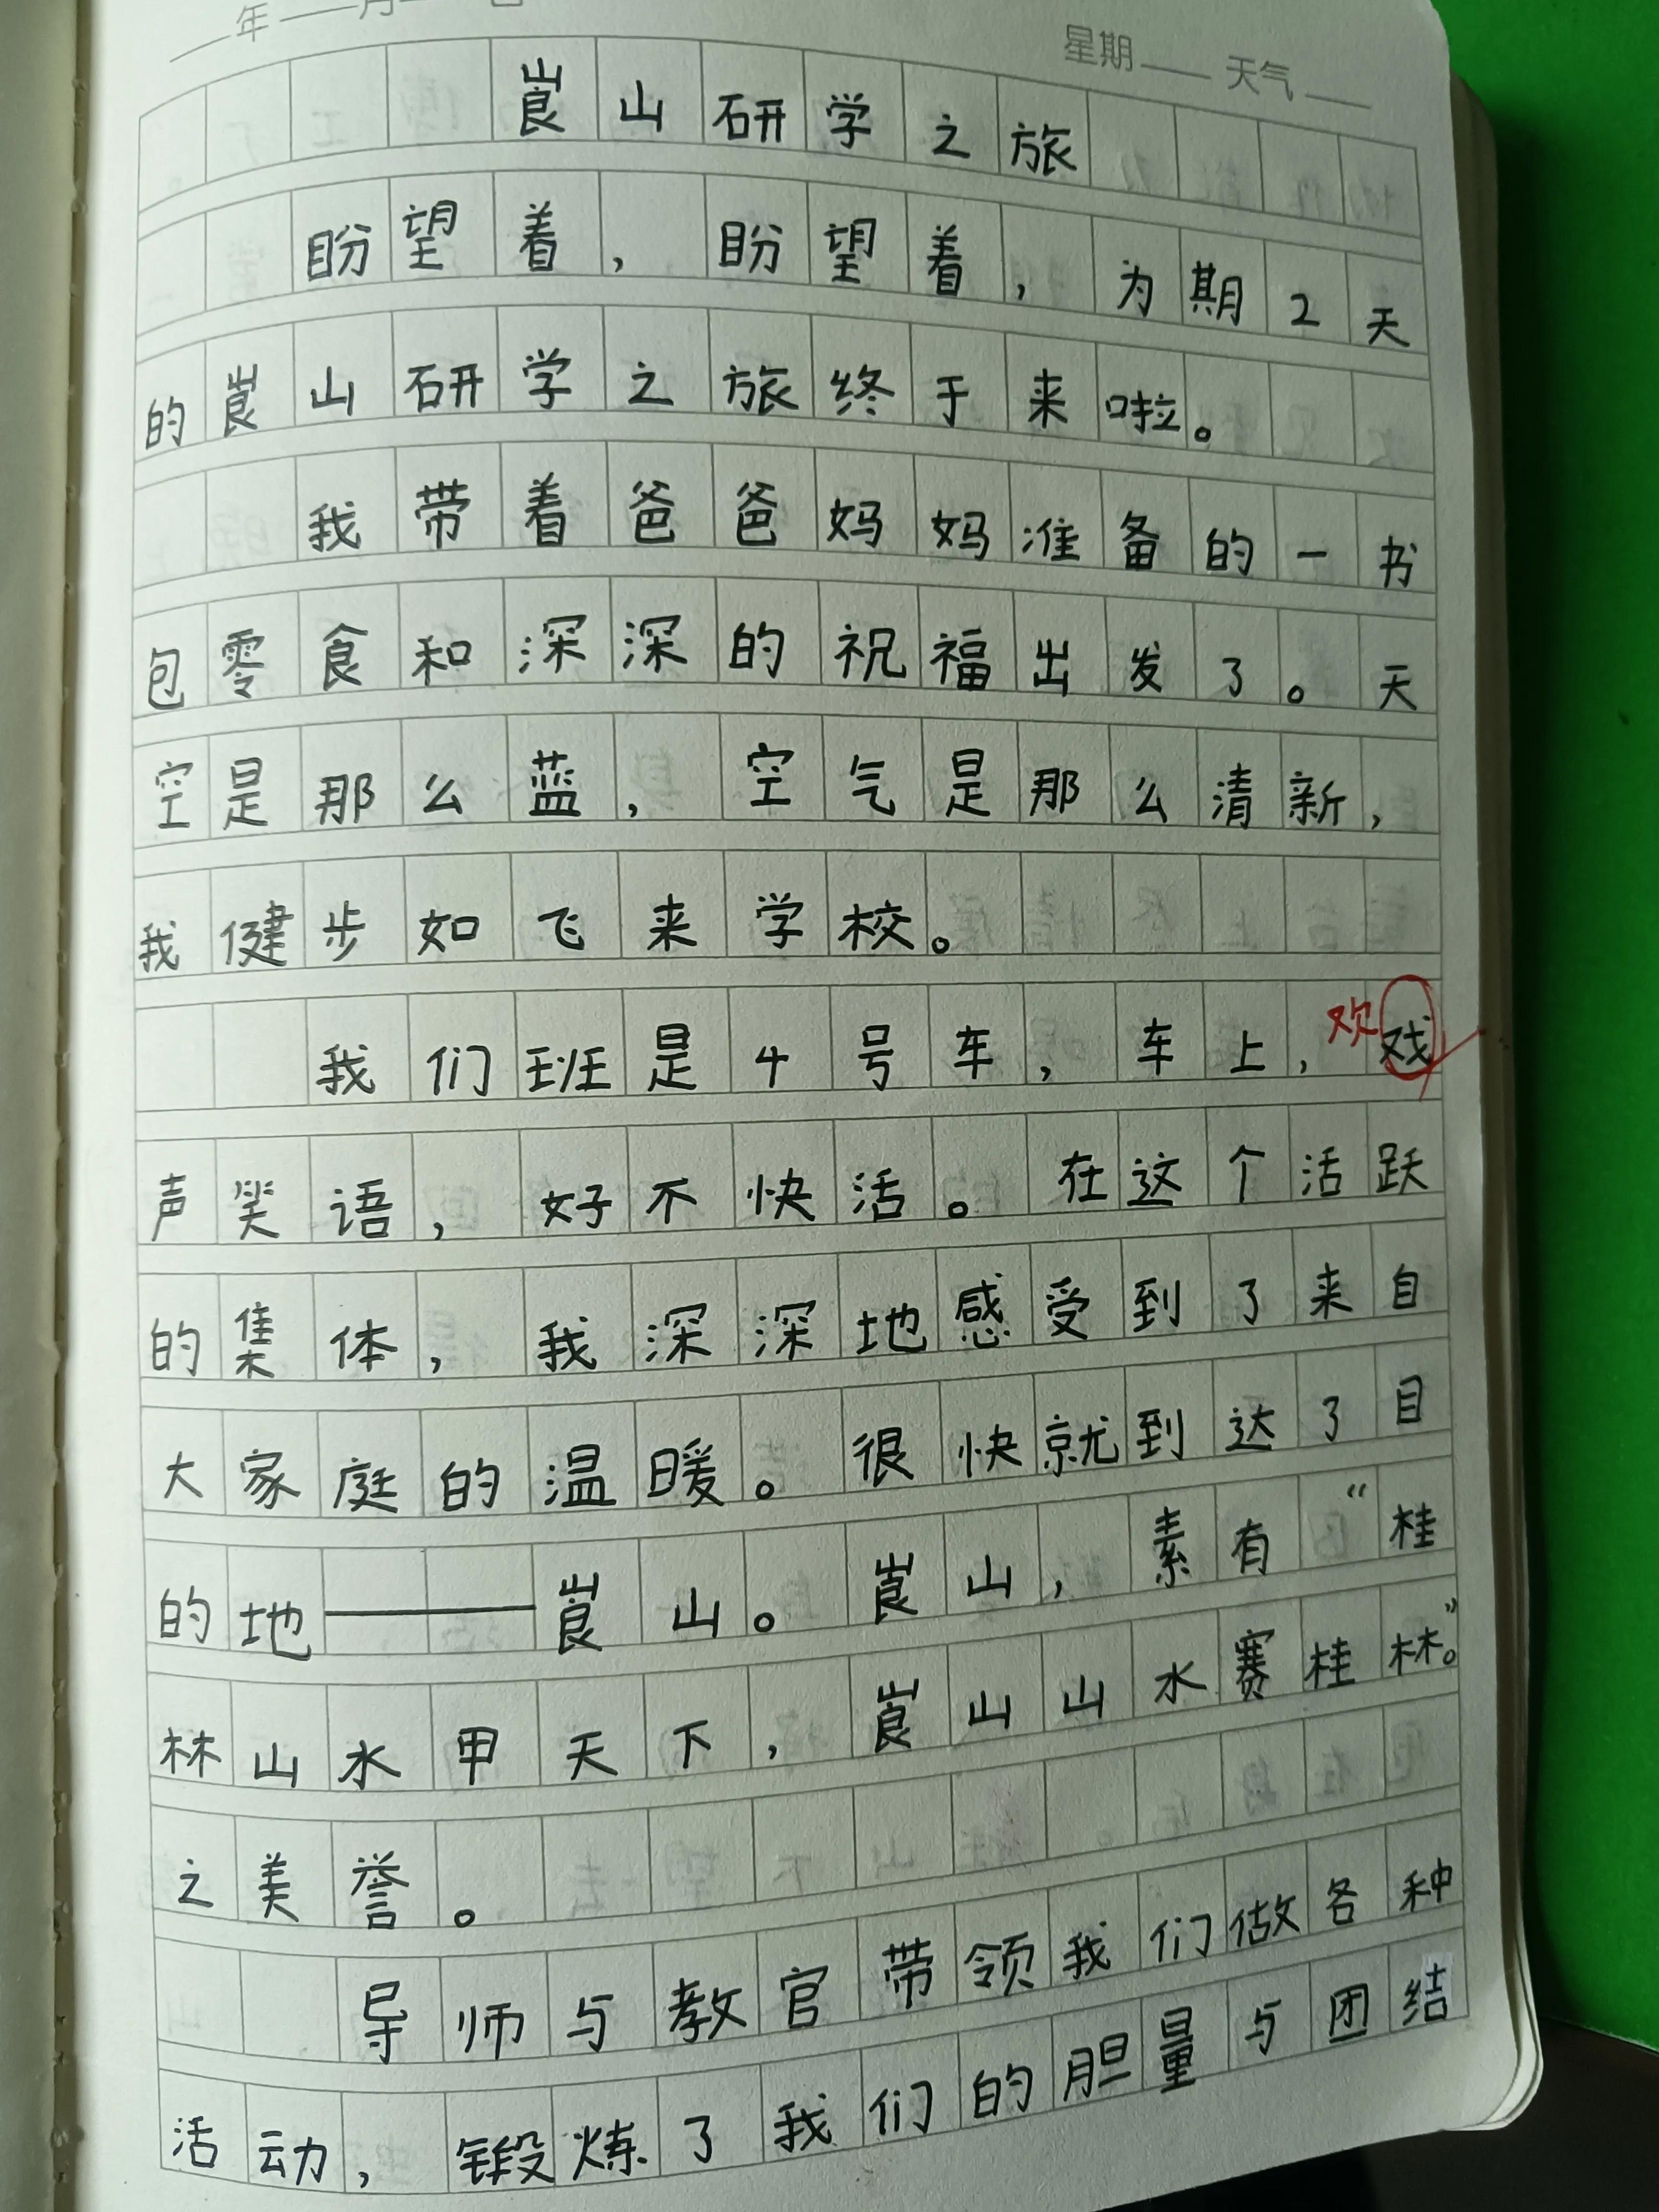 年 月 日 星期 天气
崀山研学之旅
盼望着，盼望着，为期2天
的崀山研学之旅终于来啦。
我带着爸爸妈妈准备的一书
包零食和深深的祝福出发了。天
空是那么蓝，空气是那么清新，
我健步如飞来学校。
我们班是4号车，车上，欢戏
声笑语，好不快活。在这个活跃
的集体，我深深地感受到了来自
大家庭的温暖。很快就到达了目
的地——崀山。崀山，素有“桂
林山水甲天下，崀山山水赛桂林。”
之美誉。
导师与教官带领我们做各种
活动，锻炼了我们的胆量与团结